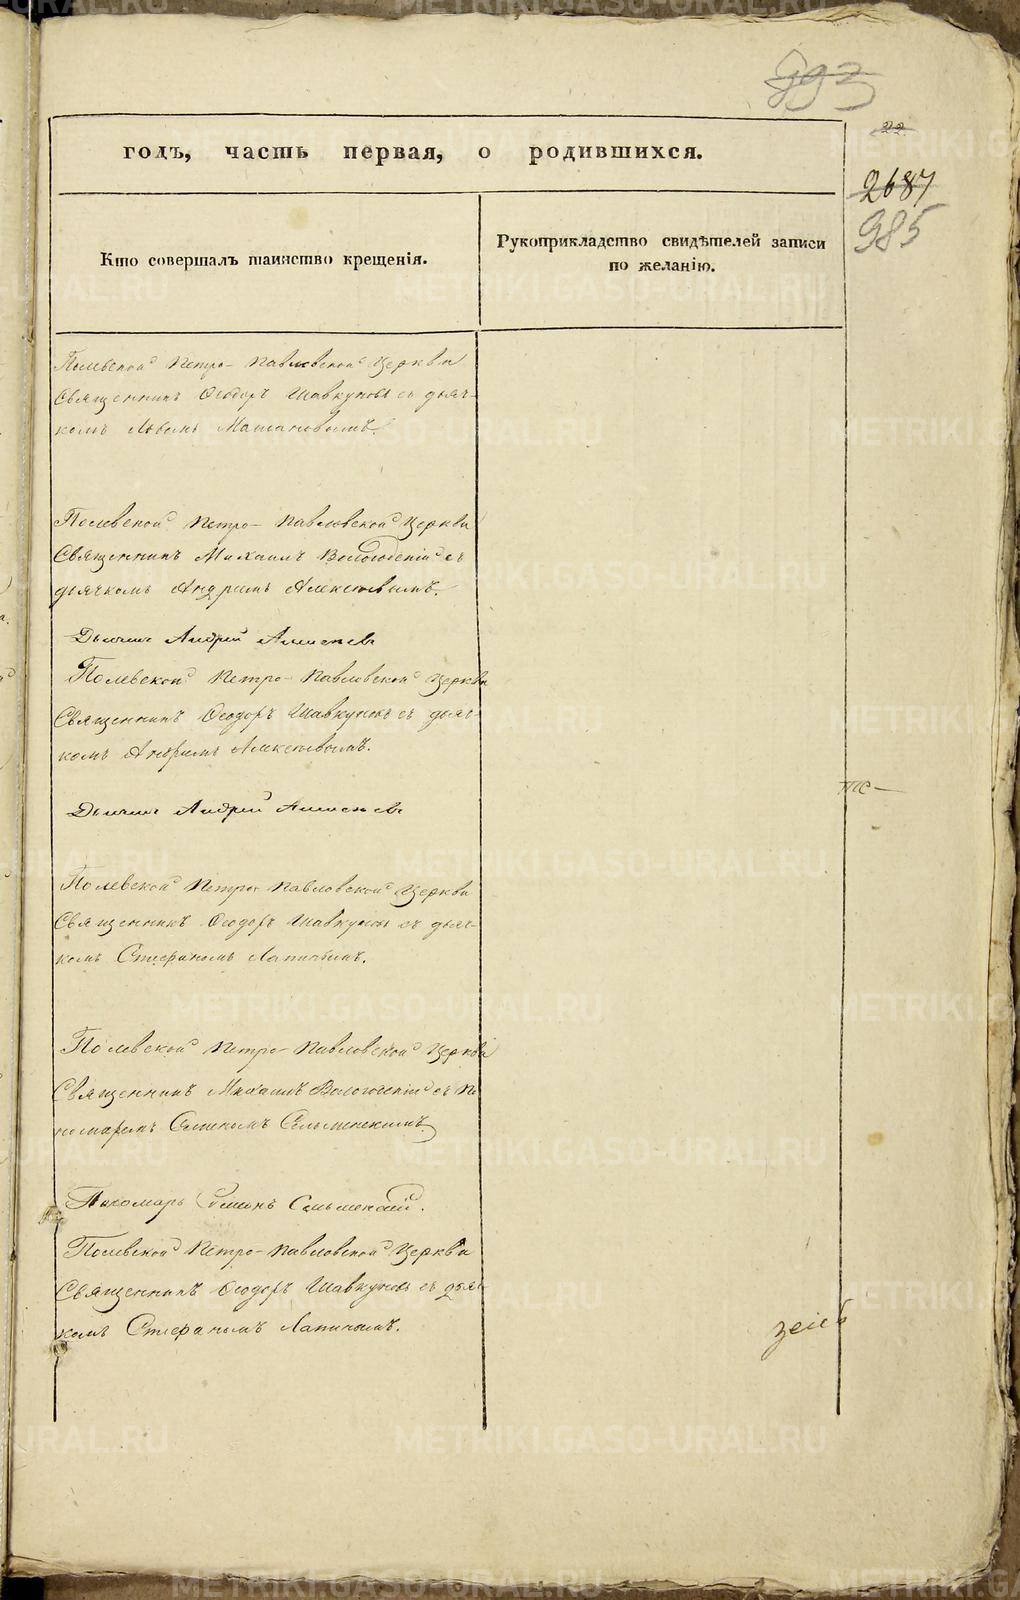 993
22
годъ, часть первая, о родившихся.
2687
985
Кто совершалъ таинство крещенія.
Рукоприкладство свидѣтелей записи
по желанію.
Полевской Петро-Павловской Церкви
Священникъ Ѳеодоръ Шавкуновъ съ дьяч-
комъ Львомъ
Полевской Петро-Павловской Церкви
Священникъ Михаилъ Вологодскій съ
дьячкомъ Андреемъ Алексѣевымъ.
Дьячекъ Андрей Алексѣевъ
Полевской Петро-Павловской Церкви
Священникъ Ѳеодоръ Шавкуновъ съ дьяч-
комъ Андреемъ Алексѣевымъ.
Дьячекъ Андрей Алексѣевъ
Полевской Петро-Павловской Церкви
Священникъ Ѳеодоръ Шавкуновъ съ дьяч-
комъ Стефаномъ Лапинымъ.
Полевской Петро-Павловской Церкви
Священникъ Михаилъ Вологодскій съ по-
номаремъ Симономъ Сельменскимъ
Пономарь Симонъ Сельменскій.
Полевской Петро-Павловской Церкви
Священникъ Ѳеодоръ Шавкуновъ съ дьяч-
комъ Стефаномъ Лапинымъ.
METRIKI.GASO-URAL.RU